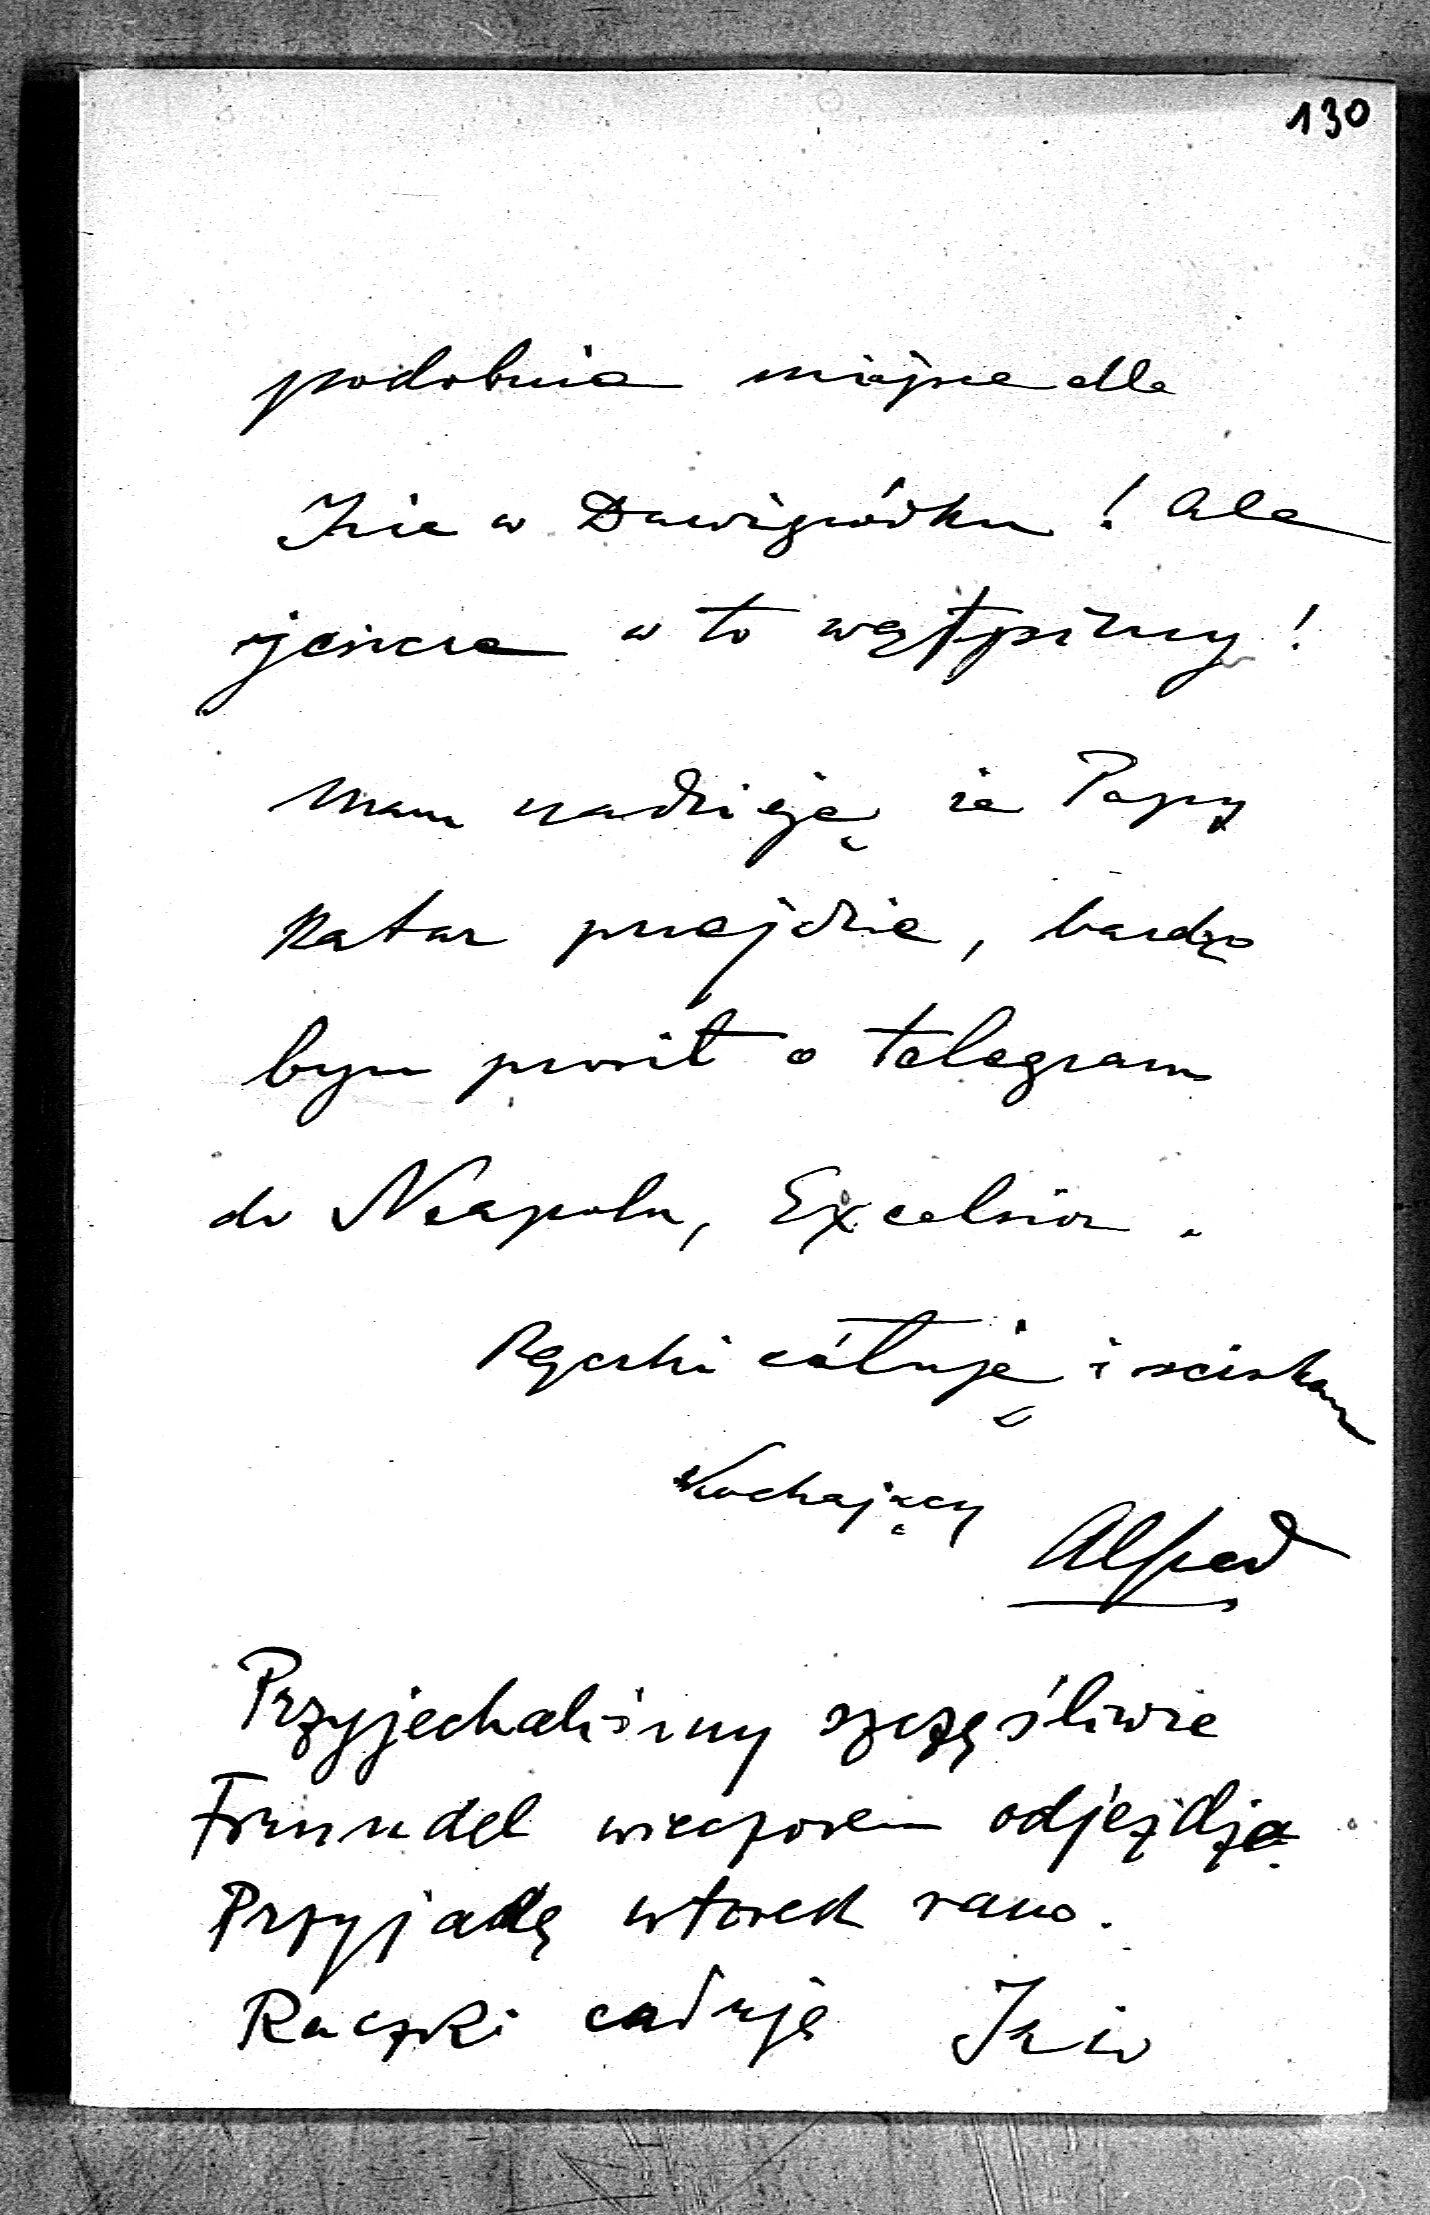 130
podobnie miejsce dla
Izia w Dawigródku ! Ale
jeszcze w to wątpimy !
Mam nadzieję że Papy
Katar przejdzie, bardzo
bym prosił o telegram
do Neapolu, Excelsior .
Rączki całuję i sciskam
Kochający Alfred
Przyjechaliśmy szczęśliwie
wieczorem odjeżdża
Przyjadę wtorek rano.
Raczki całuję Izio